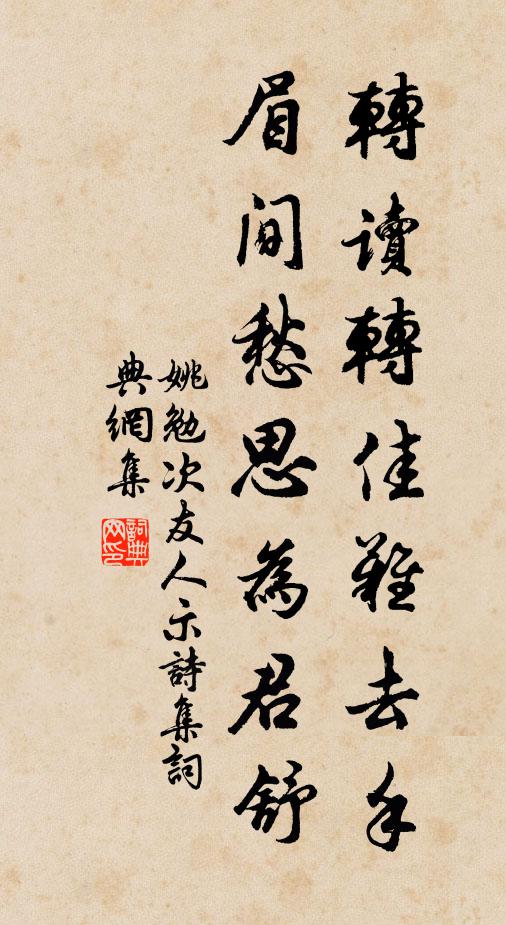 轉讀轉佳難去手
眉間愁思為君舒
姚勉次友人示詩集詞
典網集
詞典網印